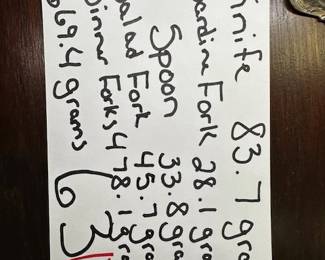 nife 83.7 gra
ardine Fork 28.1 gra
Spoon 33.8 gra
alad Fork 45.7 gra
inner Forks 4 78.1 gra
669.4 grams
63